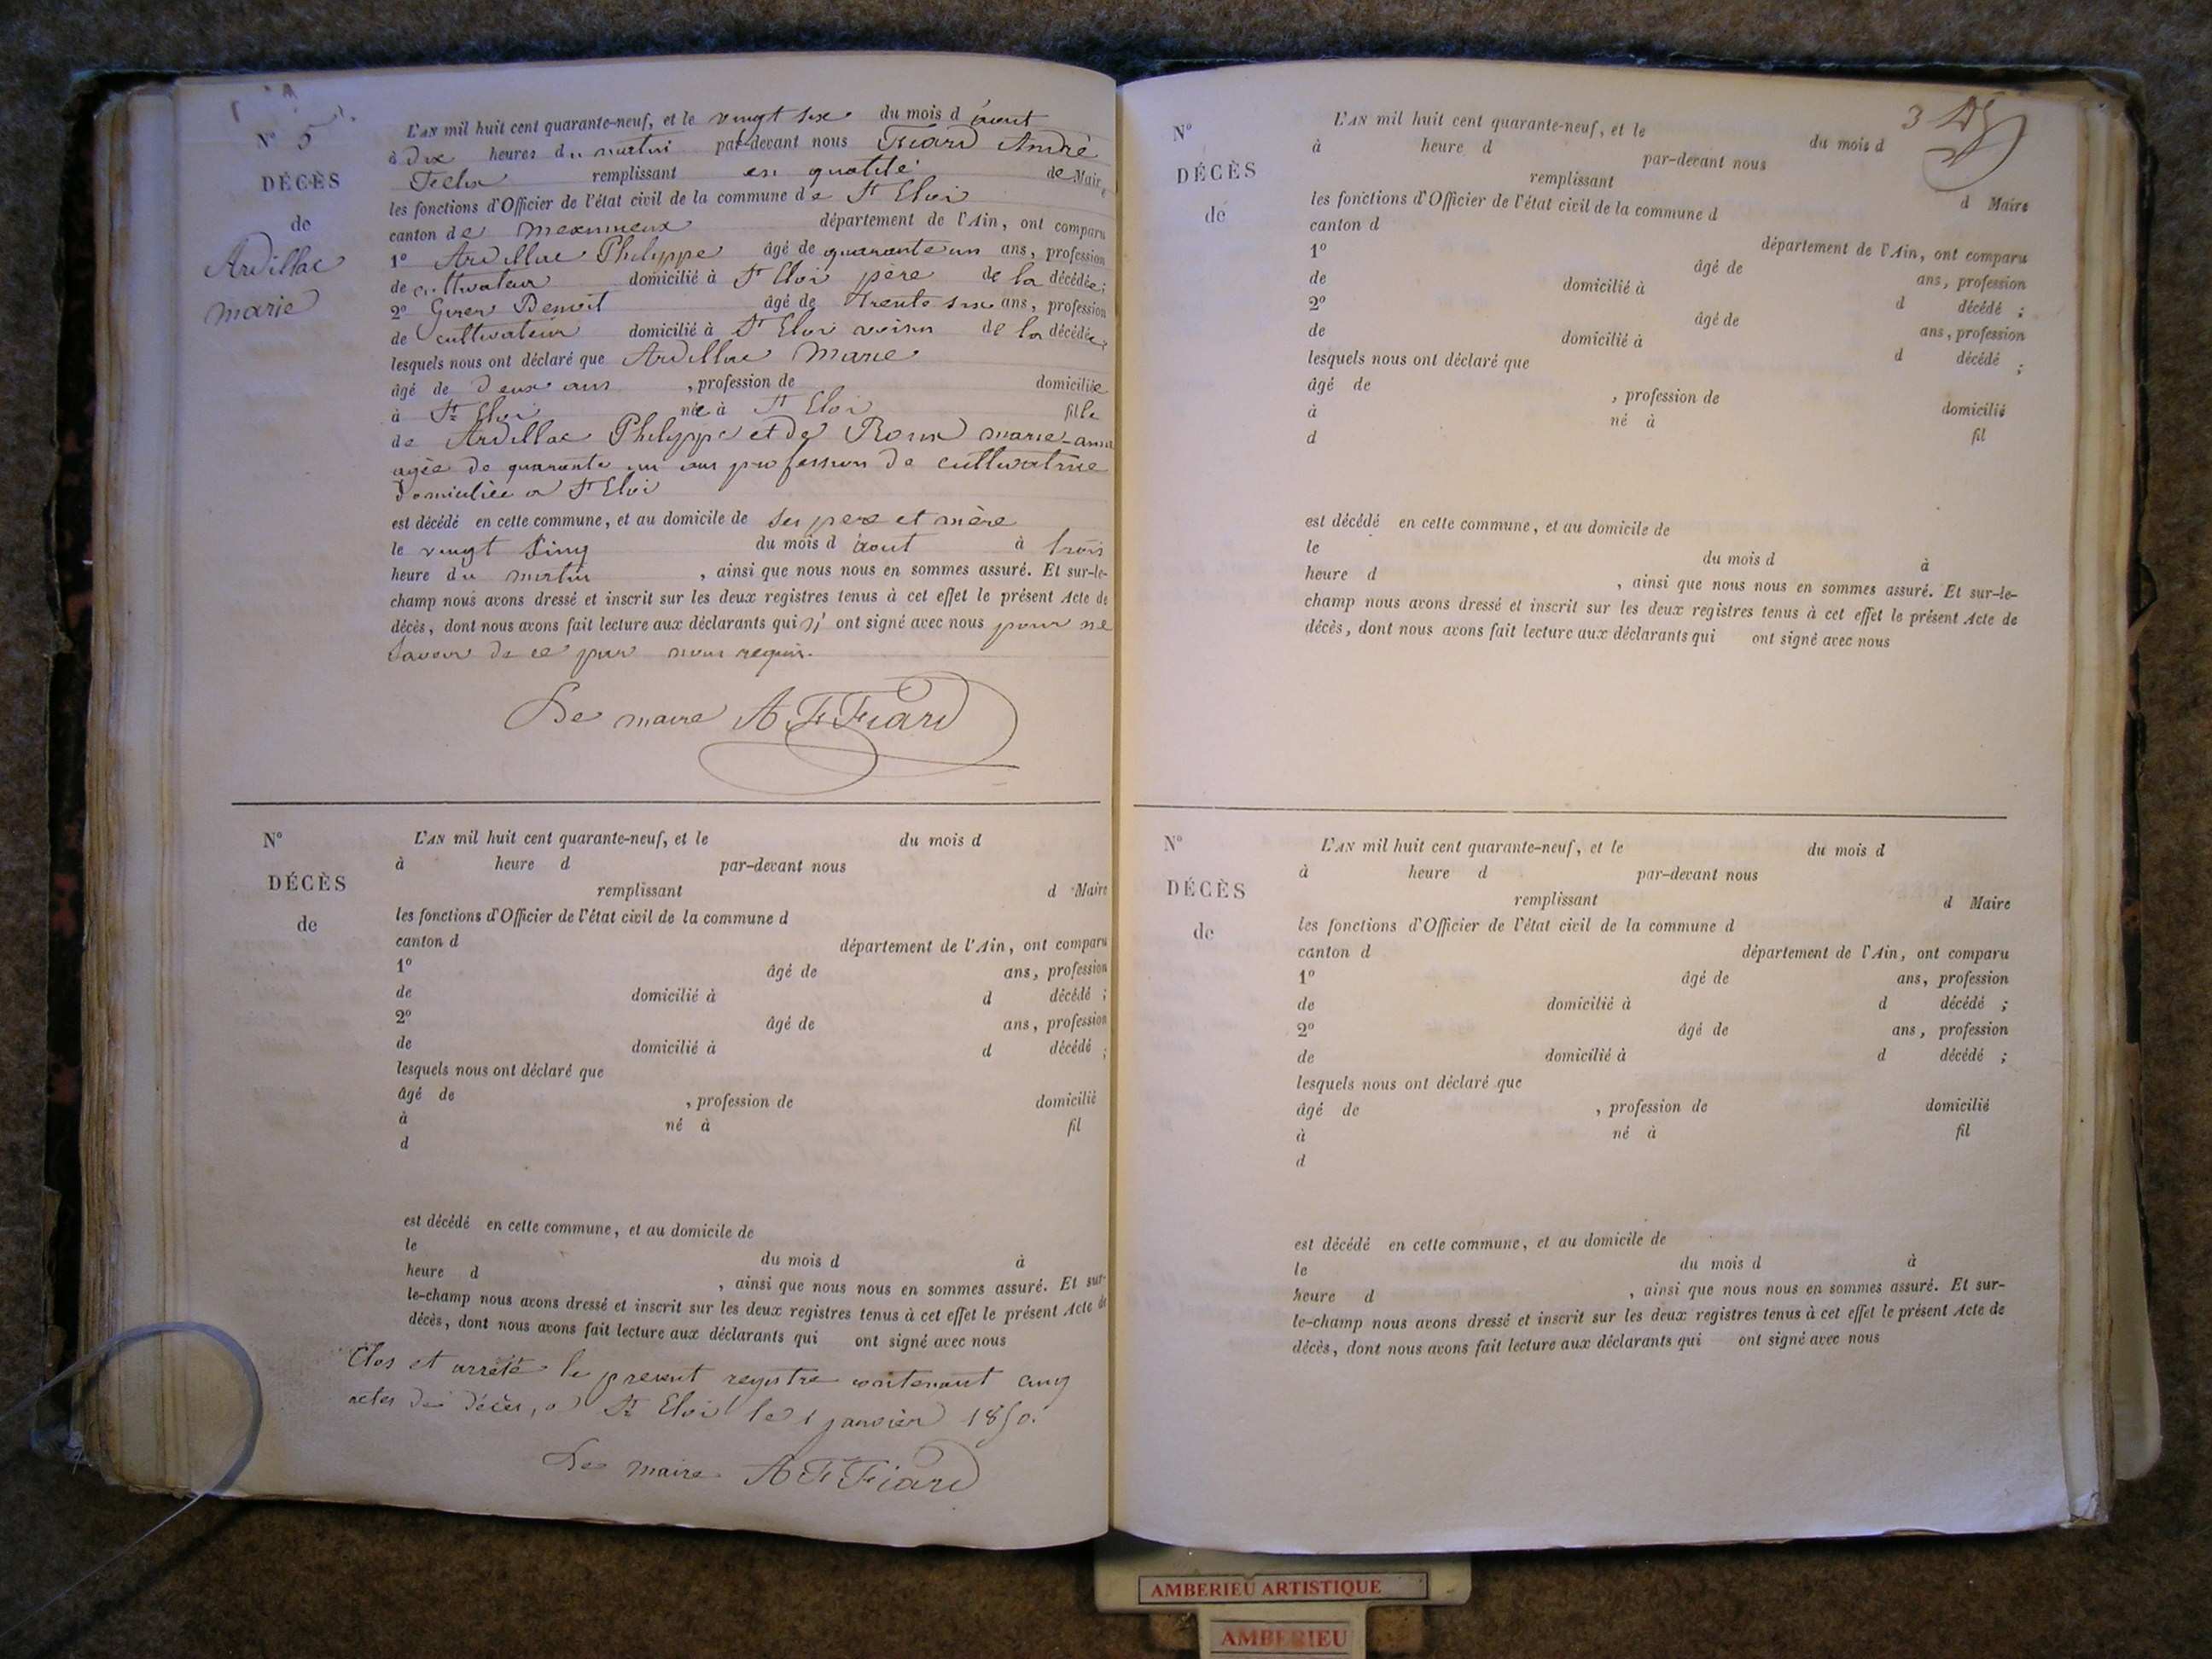 N° 5
DÉCÈS
de
Ardillac
marie
L'AN mil huit cent quarante-neuf, et le vingt six du mois d'aout
à dix heures du matin par-devant nous Fiard André
Felix remplissant en qualité de Maire
les fonctions d'Officier de l'état civil de la commune de St Eloi
canton de meximieux département de l'Ain, ont comparu
1° Ardillac Philippe âgé de quarante un ans, profession
de cultivateur domicilié à St Eloi père de la décédée;
2° Benoit âgé de trente six ans, profession
de cultivateur domicilié à St Eloi voisin de la décédée;
lesquels nous ont déclaré que Ardillac Marie
âgé de deux ans , profession de domiciliée
à St Eloi née à St Eloi fille
de Ardillac Philippe et de marie-anne
agée de quarante un ans profession de cultivatrice
domiciliée a St Eloi
est décédé en cette commune, et au domicile de ses pere et mère
le vingt sinq du mois d'aout à trois
heure du matin , ainsi que nous nous en sommes assuré. Et sur-le-
champ nous avons dressé et inscrit sur les deux registres tenus à cet effet le présent Acte de
décès, dont nous avons fait lecture aux déclarants qui n'ont signé avec nous pour ne
savoir de ce par nous requis.
Le maire A F Fiard
N°
DÉCÈS
de
L'AN mil huit cent quarante-neuf, et le du mois d
à heure d par-devant nous
remplissant d Maire
les fonctions d'Officier de l'état civil de la commune d
canton d département de l'Ain, ont comparu
1° âgé de ans, profession
de domicilié à d décédé ;
2° âgé de ans, profession
de domicilié à d décédé ;
lesquels nous ont déclaré que
âgé de , profession de domicilié
à né à fil
d
est décédé en cette commune, et au domicile de
le du mois d à
heure d , ainsi que nous nous en sommes assuré. Et sur-
le-champ nous avons dressé et inscrit sur les deux registres tenus à cet effet le présent Acte de
décès, dont nous avons fait lecture aux déclarants qui ont signé avec nous
Clos et arrêté le present registre contenant cinq
actes de décès, a St Eloi le 1 janvier 1850.
Le maire A F Fiard
3
N°
DÉCÈS
de
L'AN mil huit cent quarante-neuf, et le du mois d
à heure d par-devant nous
remplissant d Maire
les fonctions d'Officier de l'état civil de la commune d
canton d département de l'Ain, ont comparu
1° âgé de ans, profession
de domicilié à d décédé ;
2° âgé de ans, profession
de domicilié à d décédé ;
lesquels nous ont déclaré que
âgé de , profession de domicilié
à né à fil
d
est décédé en cette commune, et au domicile de
le du mois d à
heure d , ainsi que nous nous en sommes assuré. Et sur-le-
champ nous avons dressé et inscrit sur les deux registres tenus à cet effet le présent Acte de
décès, dont nous avons fait lecture aux déclarants qui ont signé avec nous
N°
DÉCÈS
de
L'AN mil huit cent quarante-neuf, et le du mois d
à heure d par-devant nous
remplissant d Maire
les fonctions d'Officier de l'état civil de la commune d
canton d département de l'Ain, ont comparu
1° âgé de ans, profession
de domicilié à d décédé ;
2° âgé de ans, profession
de domicilié à d décédé ;
lesquels nous ont déclaré que
âgé de , profession de domicilié
à né à fil
d
est décédé en cette commune, et au domicile de
le du mois d à
heure d , ainsi que nous nous en sommes assuré. Et sur-
le-champ nous avons dressé et inscrit sur les deux registres tenus à cet effet le présent Acte de
décès, dont nous avons fait lecture aux déclarants qui ont signé avec nous
AMBERIEU ARTISTIQUE
AMBERIEU